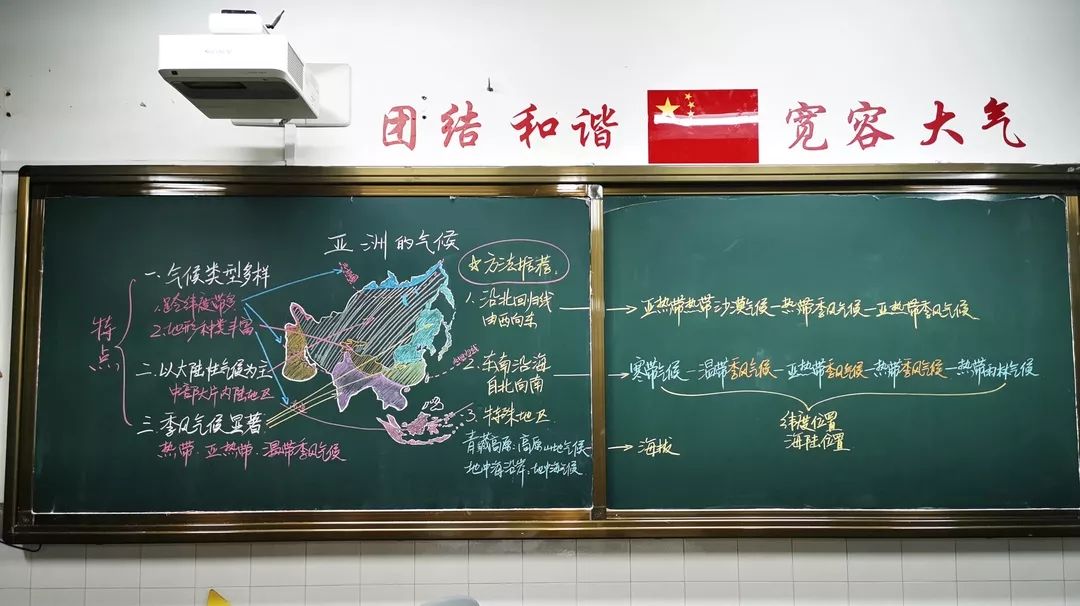 团结 和谐 宽容 大气
亚洲的气候
特点
一.气候类型多样
1.跨纬度带多
2.地形种类丰富
二.以大陆性气候为主
中部大片内陆地区
三.季风气候显著
热带.亚热带.温带季风气候
☆方法推荐:
1.沿北回归线
由西向东
2.东南沿海
自北向南
3.特殊地区
青藏高原:高原山地气候
地中海沿岸:地中海气候
亚热带热带沙漠气候-热带季风气候-亚热带季风气候
寒带气候-温带季风气候-亚热带季风气候-热带季风气候-热带雨林气候
纬度位置
海陆位置
海拔